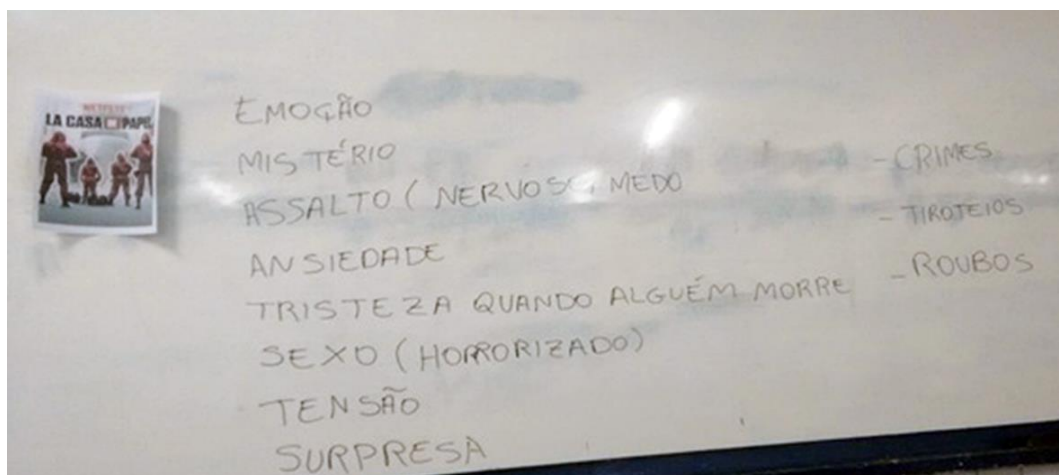 NETFLIX
LA CASA DE PAPEL
EMOÇÃO
MISTÉRIO
ASSALTO ( NERVOSO, MEDO
ANSIEDADE
TRISTEZA QUANDO ALGUÉM MORRE
SEXO (HORRORIZADO)
TENSÃO
SURPRESA
- CRIMES
- TIROTEIOS
- ROUBOS